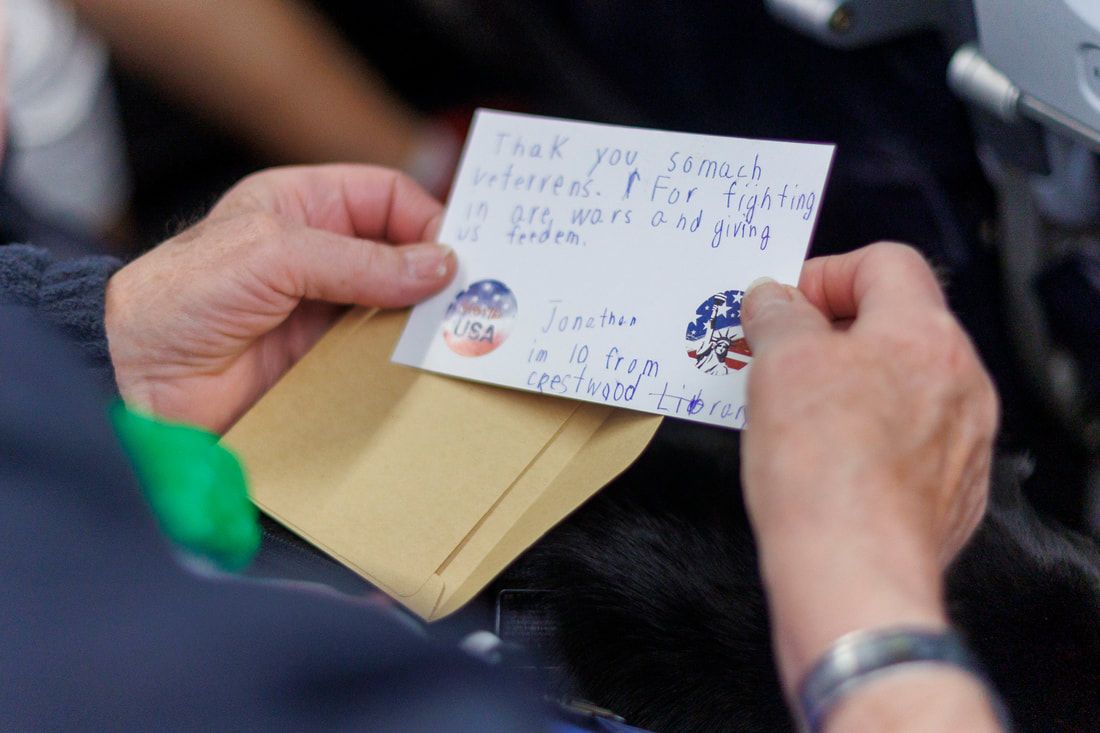 Thak you somach
veterrens. For fighting
in are wars and giving
us feedem.
USA
Jonathan
im 10 from
crestwood Library